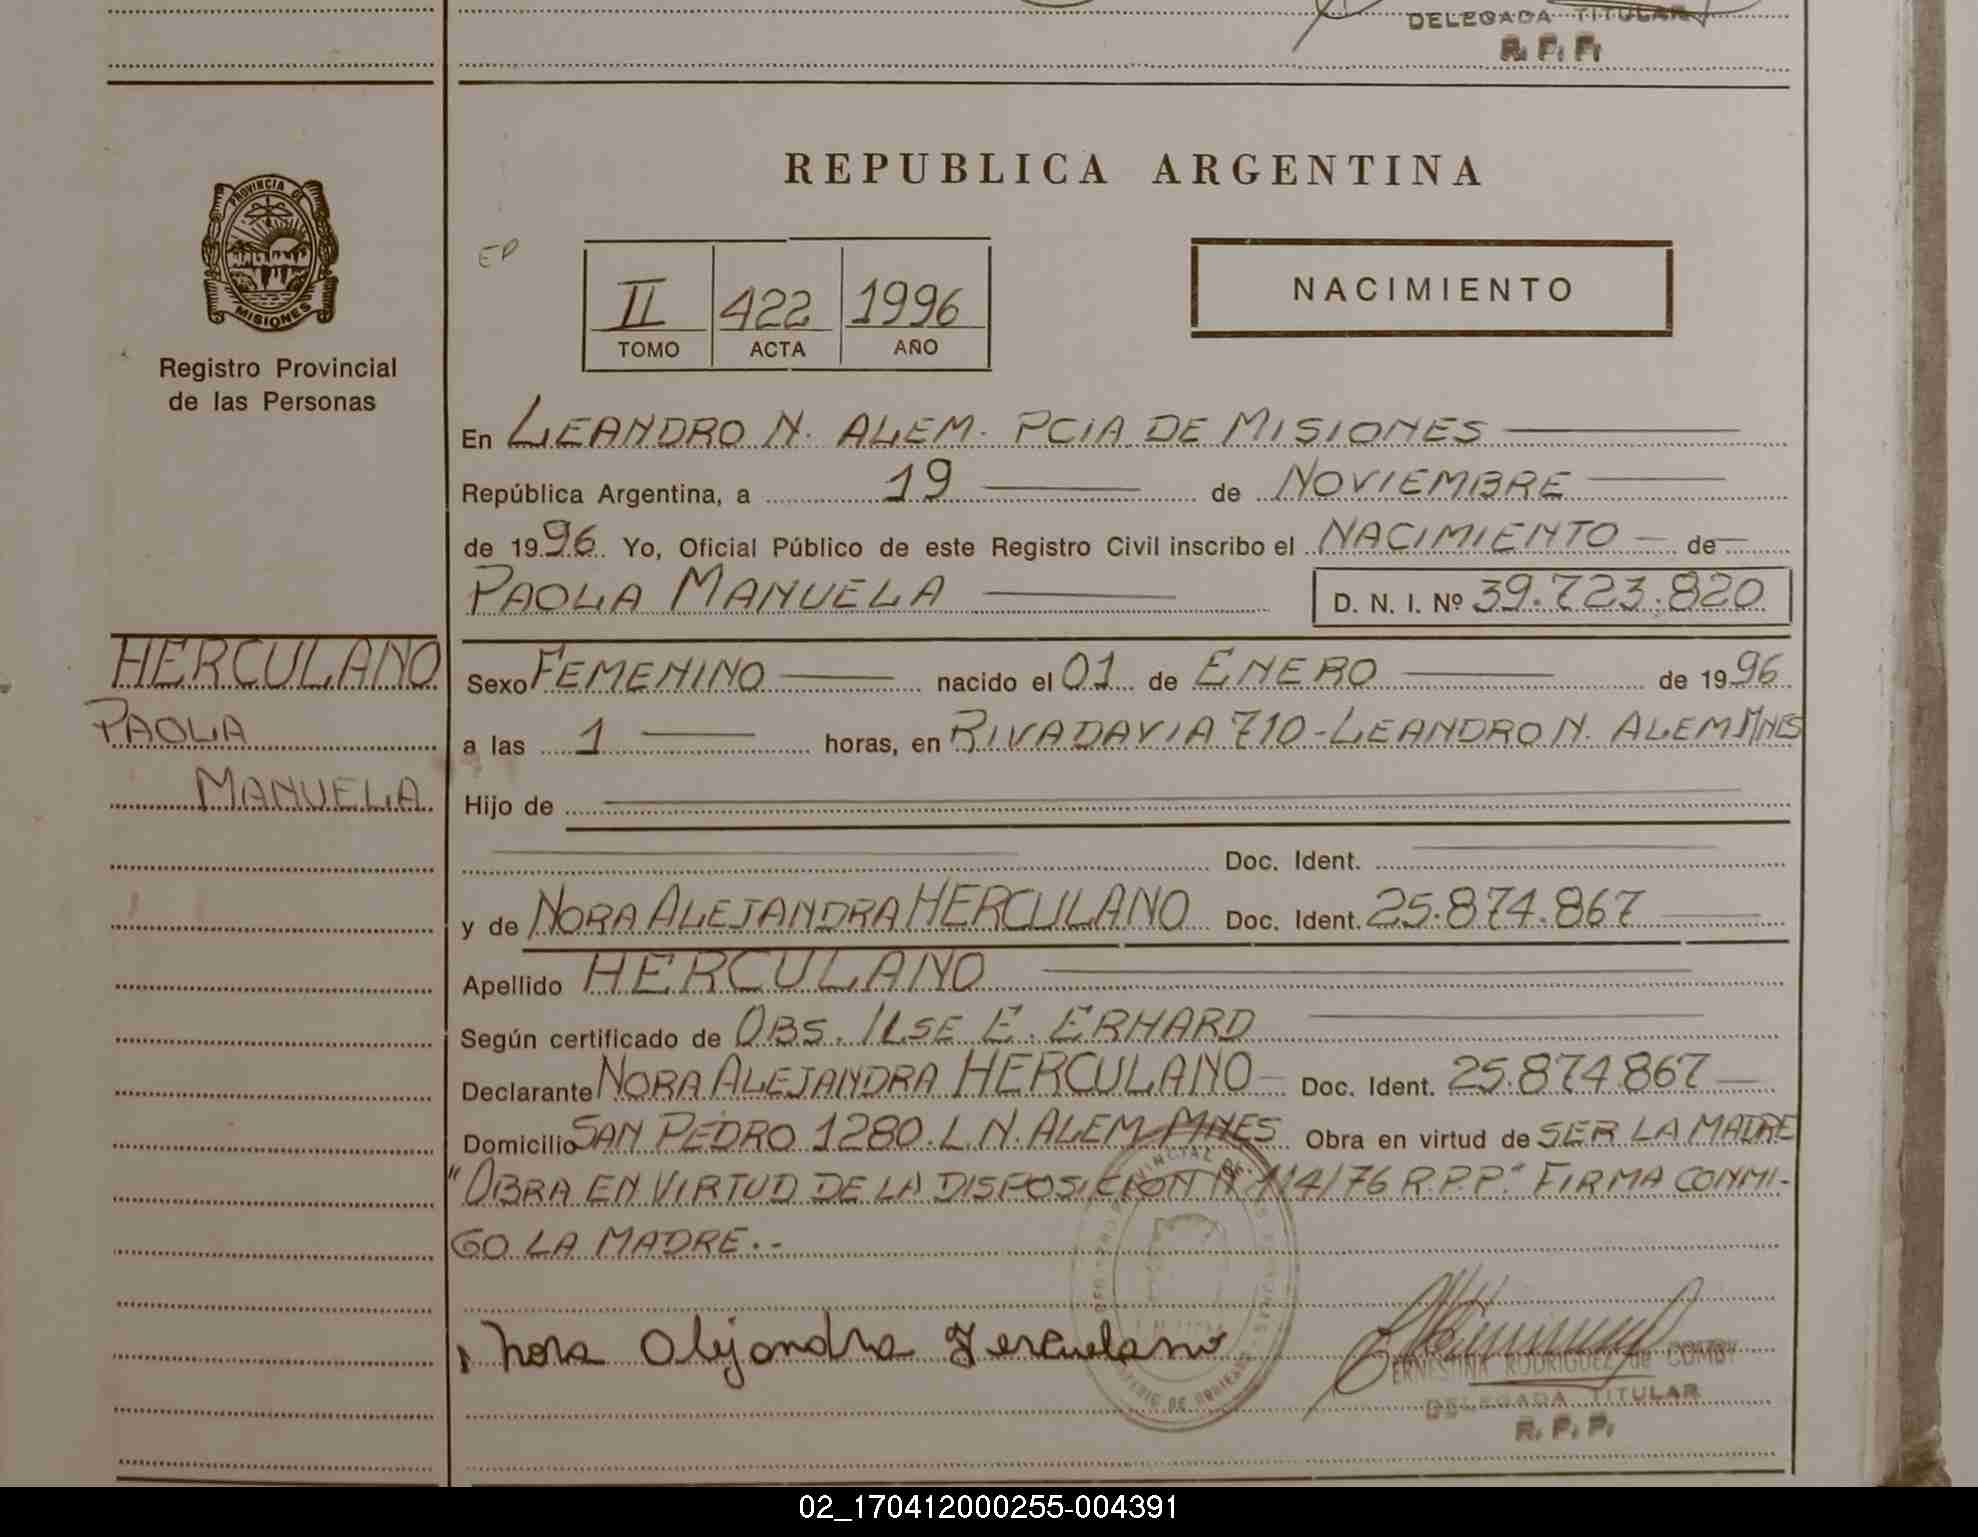 DELEGADA TITULAR
R. P. P.
REPUBLICA ARGENTINA
PROVINCIA DE
MISIONES
Registro Provincial
de las Personas
EP
II 422 1996
TOMO ACTA AÑO
NACIMIENTO
En LEANDRO N. ALEM. PCIA DE MISIONES
República Argentina, a 19 de NOVIEMBRE
de 1996. Yo, Oficial Público de este Registro Civil inscribo el NACIMIENTO de
PAOLA MANUELA D. N. I. Nº 39.723.820
HERCULANO
PAOLA
MANUELA
Sexo FEMENINO nacido el 01 de ENERO de 1996
a las 1 horas, en RIVADAVIA 710-LEANDRO N. ALEM MNES
Hijo de
Doc. Ident.
y de NORA ALEJANDRA HERCULANO Doc. Ident. 25.874.867
Apellido HERCULANO
Según certificado de OBS. ILSE E. ERHARD
Declarante NORA ALEJANDRA HERCULANO Doc. Ident. 25.874.867
Domicilio SAN PEDRO 1280. L.N. ALEM-MNES Obra en virtud de SER LA MADRE
"OBRA EN VIRTUD DE LA DISPOSICION Nº 114/76 R.P.P." FIRMA CONMI-
GO LA MADRE.-
Nora Alejandra Herculano
ERNESTINA RODRIGUEZ de COMBY
DELEGADA TITULAR
R. P. P.
02_170412000255-004391